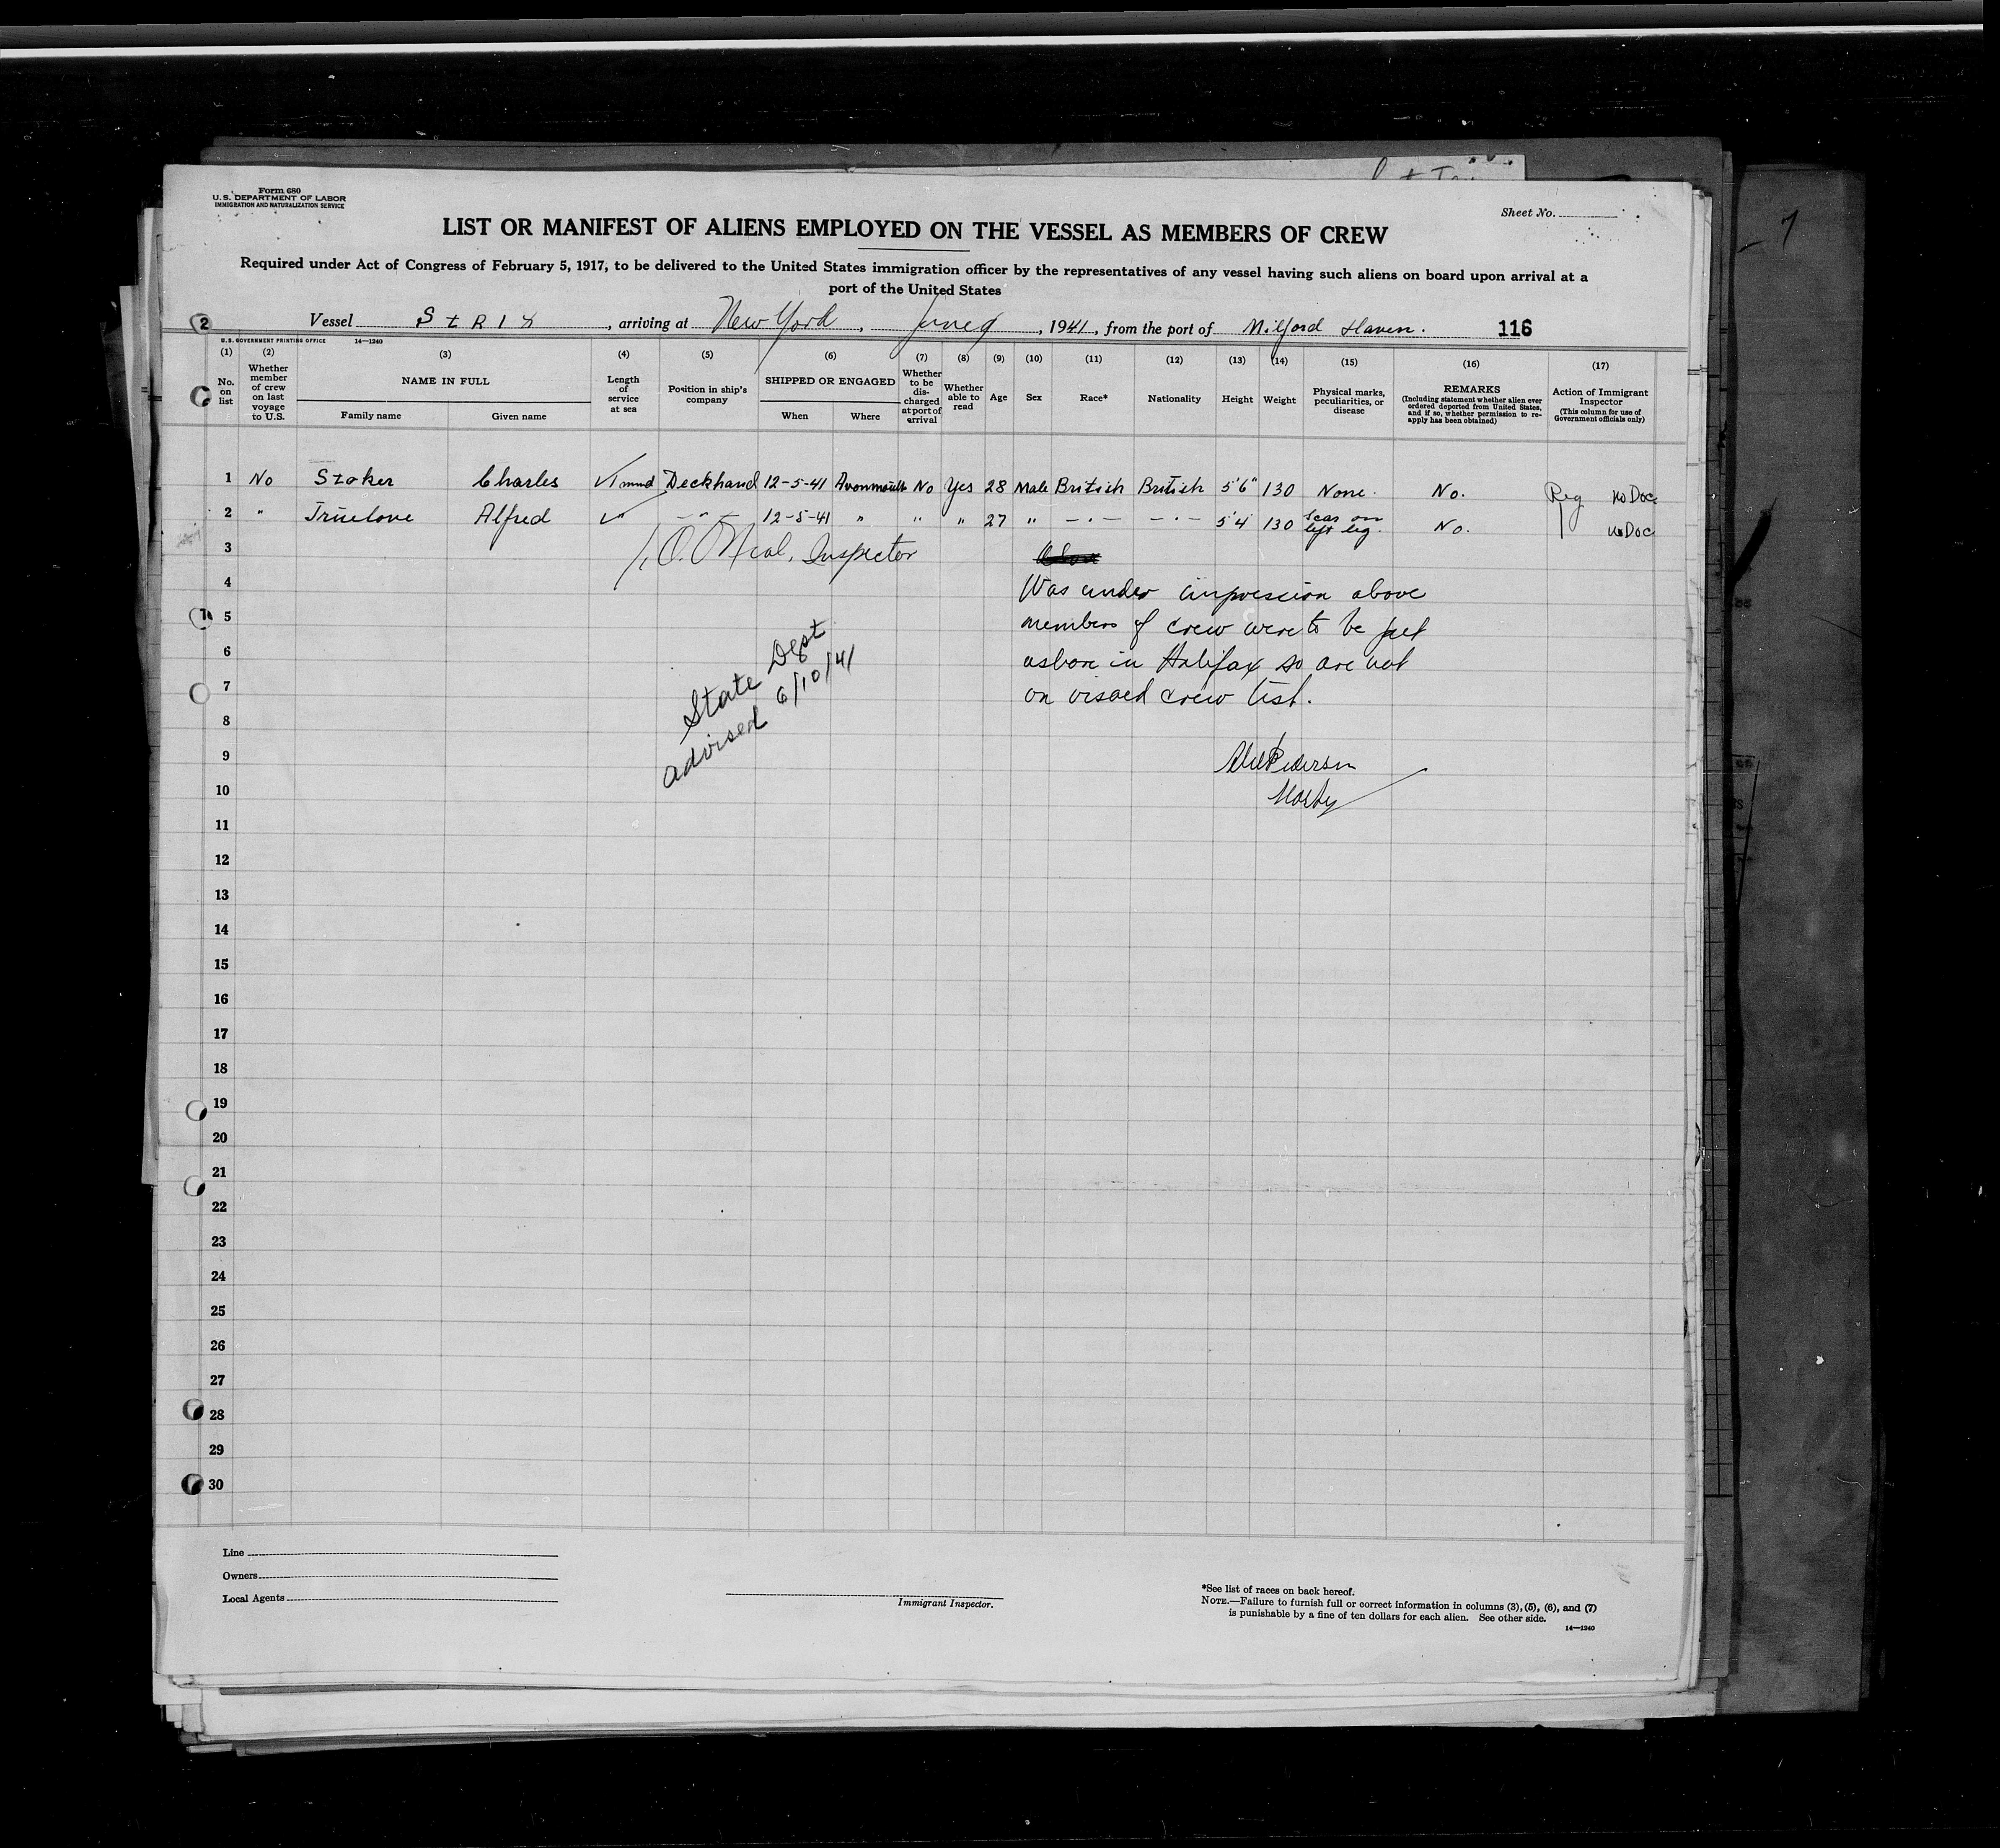 Form 680
U. S. DEPARTMENT OF LABOR
IMMIGRATION AND NATURALIZATION SERVICE
Sheet No.
LIST OR MANIFEST OF ALIENS EMPLOYED ON THE VESSEL AS MEMBERS OF CREW
Required under Act of Congress of February 5, 1917, to be delivered to the United States immigration officer by the representatives of any vessel having such aliens on board upon arrival at a
port of the United States
2 Vessel , arriving at New York , June 9 , 1941 , from the port of Milford Haven. 116
U. S. GOVERNMENT PRINTING OFFICE 14—1240
(1) (2) (3) (4) (5) (6) (7) (8) (9) (10) (11) (12) (13) (14) (15) (16) (17)
No. on list
Whether member of crew on last voyage to U.S.
NAME IN FULL
Family name Given name
Length of service at sea
Position in ship's company
SHIPPED OR ENGAGED
When Where
Whether to be discharged at port of arrival
Whether able to read
Age
Sex
Race*
Nationality
Height
Weight
Physical marks, peculiarities, or disease
REMARKS
(Including statement whether alien ever ordered deported from United States, and if so, whether permission to reapply has been obtained)
Action of Immigrant Inspector
(This column for use of Government officials only)
1 No Stoker Charles Deckhand 12-5-41 Avonmouth No Yes 28 Male British British 5'6" 130 None. No. Reg no Doc
2 " Truelove Alfred " — " — 12-5-41 " " " 27 " — " — — " — 5'4 130 Scar on left leg. No. no Doc
O'Neal, Inspector
3
4
5
6
7
8
9
10
11
12
13
14
15
16
17
18
19
20
21
22
23
24
25
26
27
28
29
30
Was under impression above
members of crew were to be put
ashore in Halifax so are not
on visaed crew list.
State Dept
advised 6/10/41
Pedersen
Line
Owners
Local Agents
Immigrant Inspector.
*See list of races on back hereof.
NOTE.—Failure to furnish full or correct information in columns (3), (5), (6), and (7)
is punishable by a fine of ten dollars for each alien. See other side.
14—1240